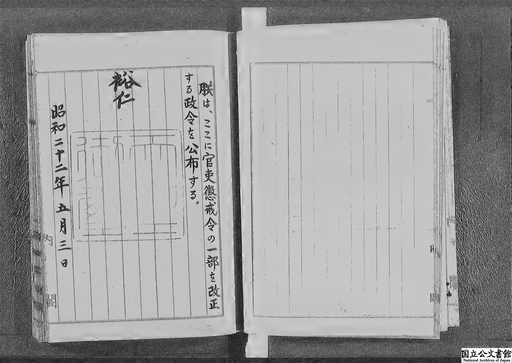 朕は、ここに官吏懲戒令の一部を改正
する政令を公布する。
裕仁
昭和二十二年五月三日
内閣
国立公文書館
National Archives of Japan